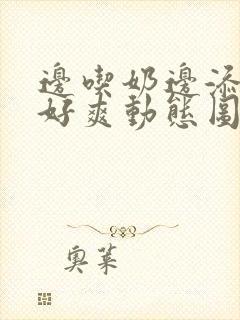 邊喫奶邊添
好爽動態圖
奧萊